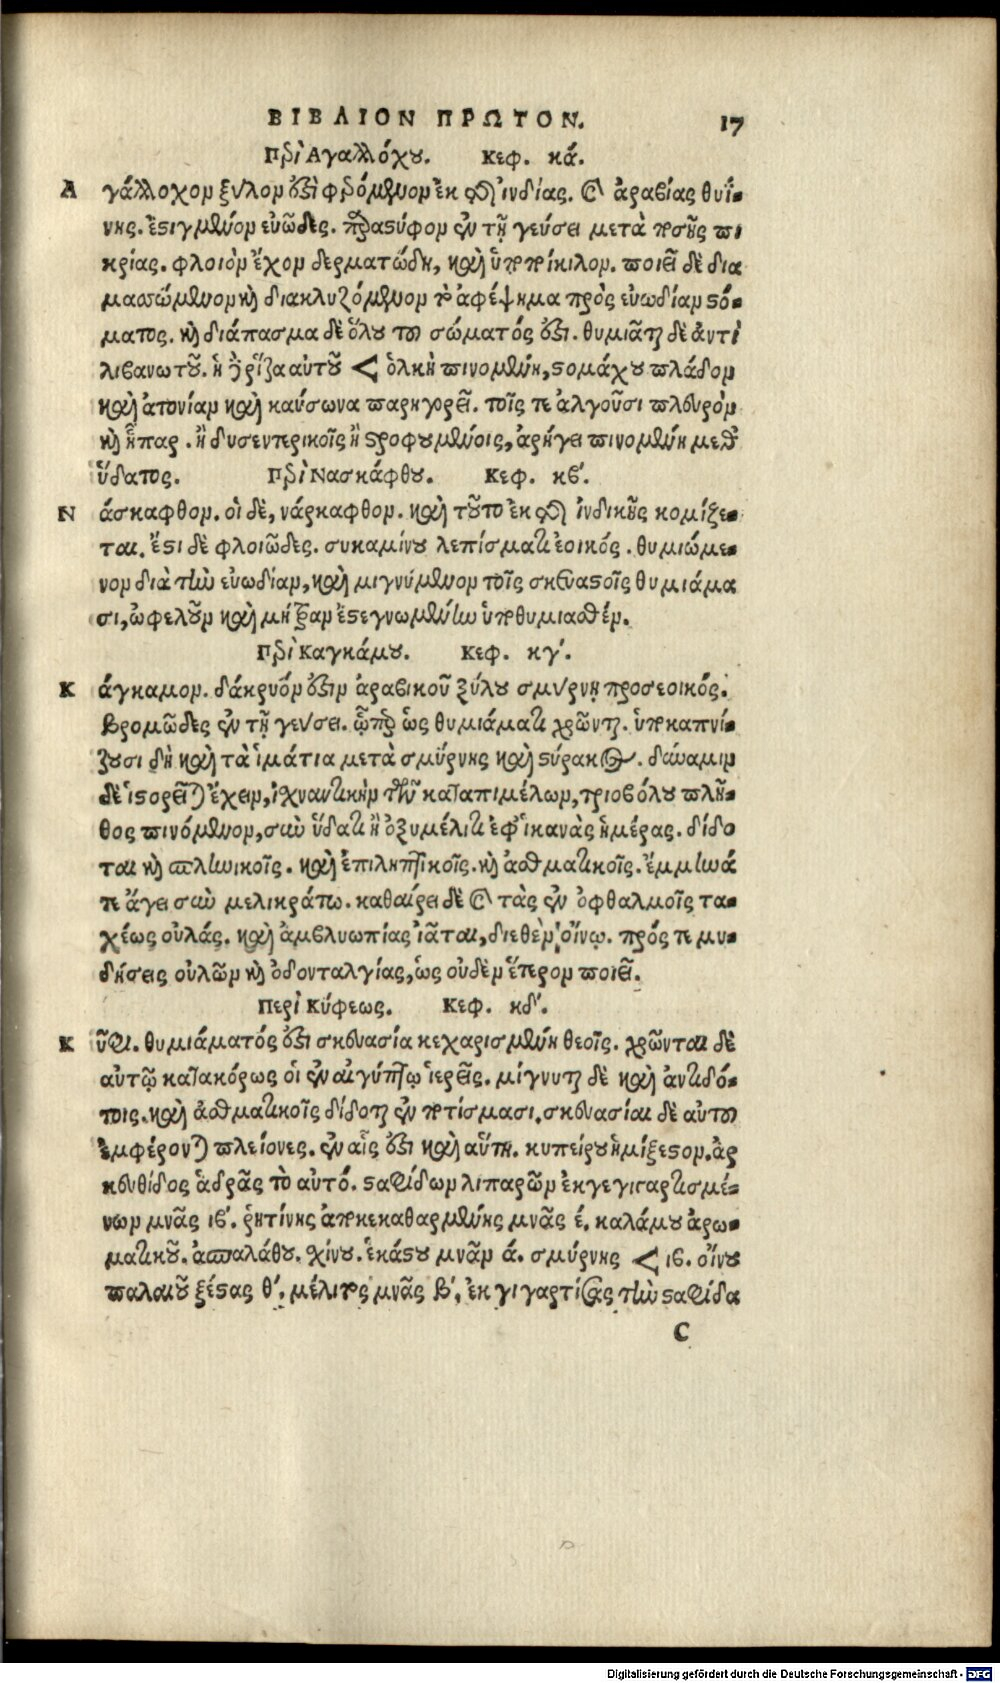 ΒΙΒΛΙΟΝ ΠΡΩΤΟΝ. 17
Περὶ Ἀγαλλόχου. Κεφ. κά.
Ἀγάλλοχον ξύλον ἐστὶ φερόμενον ἐκ τῆς ἰνδίας. καὶ ἀραβίας θυΐ-
νης. ἐστιγμένον εὐῶδες. παραστύφον ἐν τῇ γεύσει μετὰ ποσῆς πι
κρίας. φλοιὸν ἔχον δερματώδη, καὶ ὑποποίκιλον. ποιεῖ δὲ δια
μασσώμενον καὶ διακλυζόμενον τὸ ἀφέψημα πρὸς εὐωδίαν στό-
ματος. καὶ διάπασμα δὲ ὅλου τοῦ σώματός ἐστι. θυμιᾶται δὲ ἀντὶ
λιβανωτοῦ. ἡ δὲ ῥίζα αὐτοῦ < ὁλκὴ πινομένη, στομάχου πλάδον
καὶ ἀτονίαν καὶ καύσωνα παρηγορεῖ. τοῖς τε ἀλγοῦσι πλευρὸν
καὶ ἧπαρ. ἢ δυσεντερικοῖς ἢ στροφουμένοις, ἀρήγει πινομένη μεθ'
ὕδατος. Περὶ Νασκάφθου. Κεφ. κβ'.
Νάσκαφθον. οἱ δὲ, νάρκαφθον. καὶ τοῦτο ἐκ τῆς ἰνδικῆς κομίζε-
ται. ἔστι δὲ φλοιῶδες. συκαμίνου λεπίσματι ἐοικός. θυμιώμε-
νον διὰ τὴν εὐωδίαν, καὶ μιγνύμενον τοῖς σκευαστοῖς θυμιάμα
σι, ὠφελοῦν καὶ μήτραν ἐστεγνωμένην ὑποθυμιαθέν.
Περὶ Καγκάμου. Κεφ. κγ'.
Κάγκαμον. δάκρυόν ἐστιν ἀραβικοῦ ξύλου σμύρνῃ προσεοικός.
βρομῶδες ἐν τῇ γεύσει. ᾧπερ ὡς θυμιάματι χρῶνται. ὑποκαπνί-
ζουσι δὴ καὶ τὰ ἱμάτια μετὰ σμύρνης καὶ στύρακος. δύναμιν
δὲ ἱστορεῖται ἔχειν, ἰχναντικὴν τῶν καταπιμέλων, τριοβόλου πλῆ-
θος πινόμενον, σὺν ὕδατι ἢ ὀξυμέλιτι ἐφ' ἱκανὰς ἡμέρας. δίδο
ται καὶ σπληνικοῖς. καὶ ἐπιληπτικοῖς. καὶ ἀσθματικοῖς. ἔμμηνά
τε ἄγει σὺν μελικράτῳ. καθαίρει δὲ καὶ τὰς ἐν ὀφθαλμοῖς τα-
χέως οὐλάς. καὶ ἀμβλυωπίας ἰᾶται, διεθὲν οἴνῳ. πρός τε μυ-
δήσεις οὐλῶν καὶ ὀδονταλγίας, ὡς οὐδὲν ἕτερον ποιεῖ.
Περὶ Κύφεως. Κεφ. κδ'.
Κῦφι. θυμιάματός ἐστι σκευασία κεχαρισμένη θεοῖς. χρῶνται δὲ
αὐτῷ κατακόρως οἱ ἐν αἰγύπτῳ ἱερεῖς. μίγνυται δὲ καὶ ἀντιδό-
τοις. καὶ ἀσθματικοῖς δίδοται ἐν ποτίσμασι. σκευασίαι δὲ αὐτοῦ
ἐμφέρονται πλείονες. ἐν αἷς ἐστι καὶ αὕτη. κυπείρου ἡμίξεστον. ἀρ
κευθίδος ἁδρᾶς τὸ αὐτό. σταφίδων λιπαρῶν ἐκγεγιγαρτισμέ-
νων μνᾶς ιβ'. ῥητίνης ἀποκεκαθαρμένης μνᾶς έ. καλάμου ἀρω-
ματικοῦ. ἀσπαλάθου. χίνου. ἑκάστου μνᾶν ά. σμύρνης < ιβ. οἴνου
παλαιοῦ ξέστας θ'. μέλιτος μνᾶς β'. ἐκγιγαρτίσας τὴν σταφίδα
C
Digitalisierung gefördert durch die Deutsche Forschungsgemeinschaft - DFG